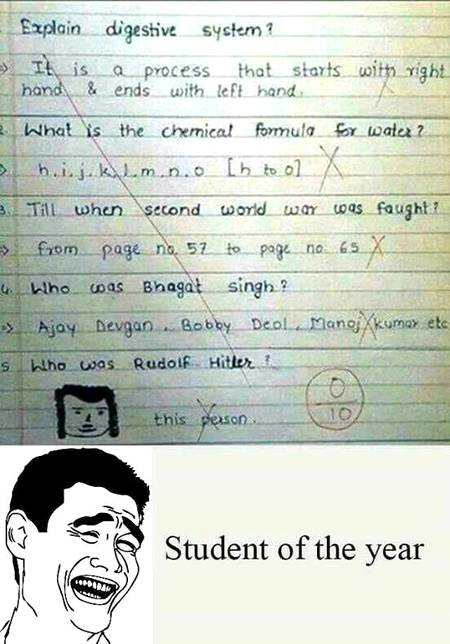 Explain digestive system?
⇒ It is a process that starts with right
hand & ends with left hand.
2. What is the chemical formula for water?
⇒ h.i.j.k.l.m.n.o [h to o]
3. Till when second world war was faught?
⇒ from page no. 57 to page no. 65
4. Who was Bhagat singh?
⇒ Ajay Devgan, Bobby Deol, Manoj kumar etc
5 Who was Rudolf Hitler?
this person.
0
10
Student of the year